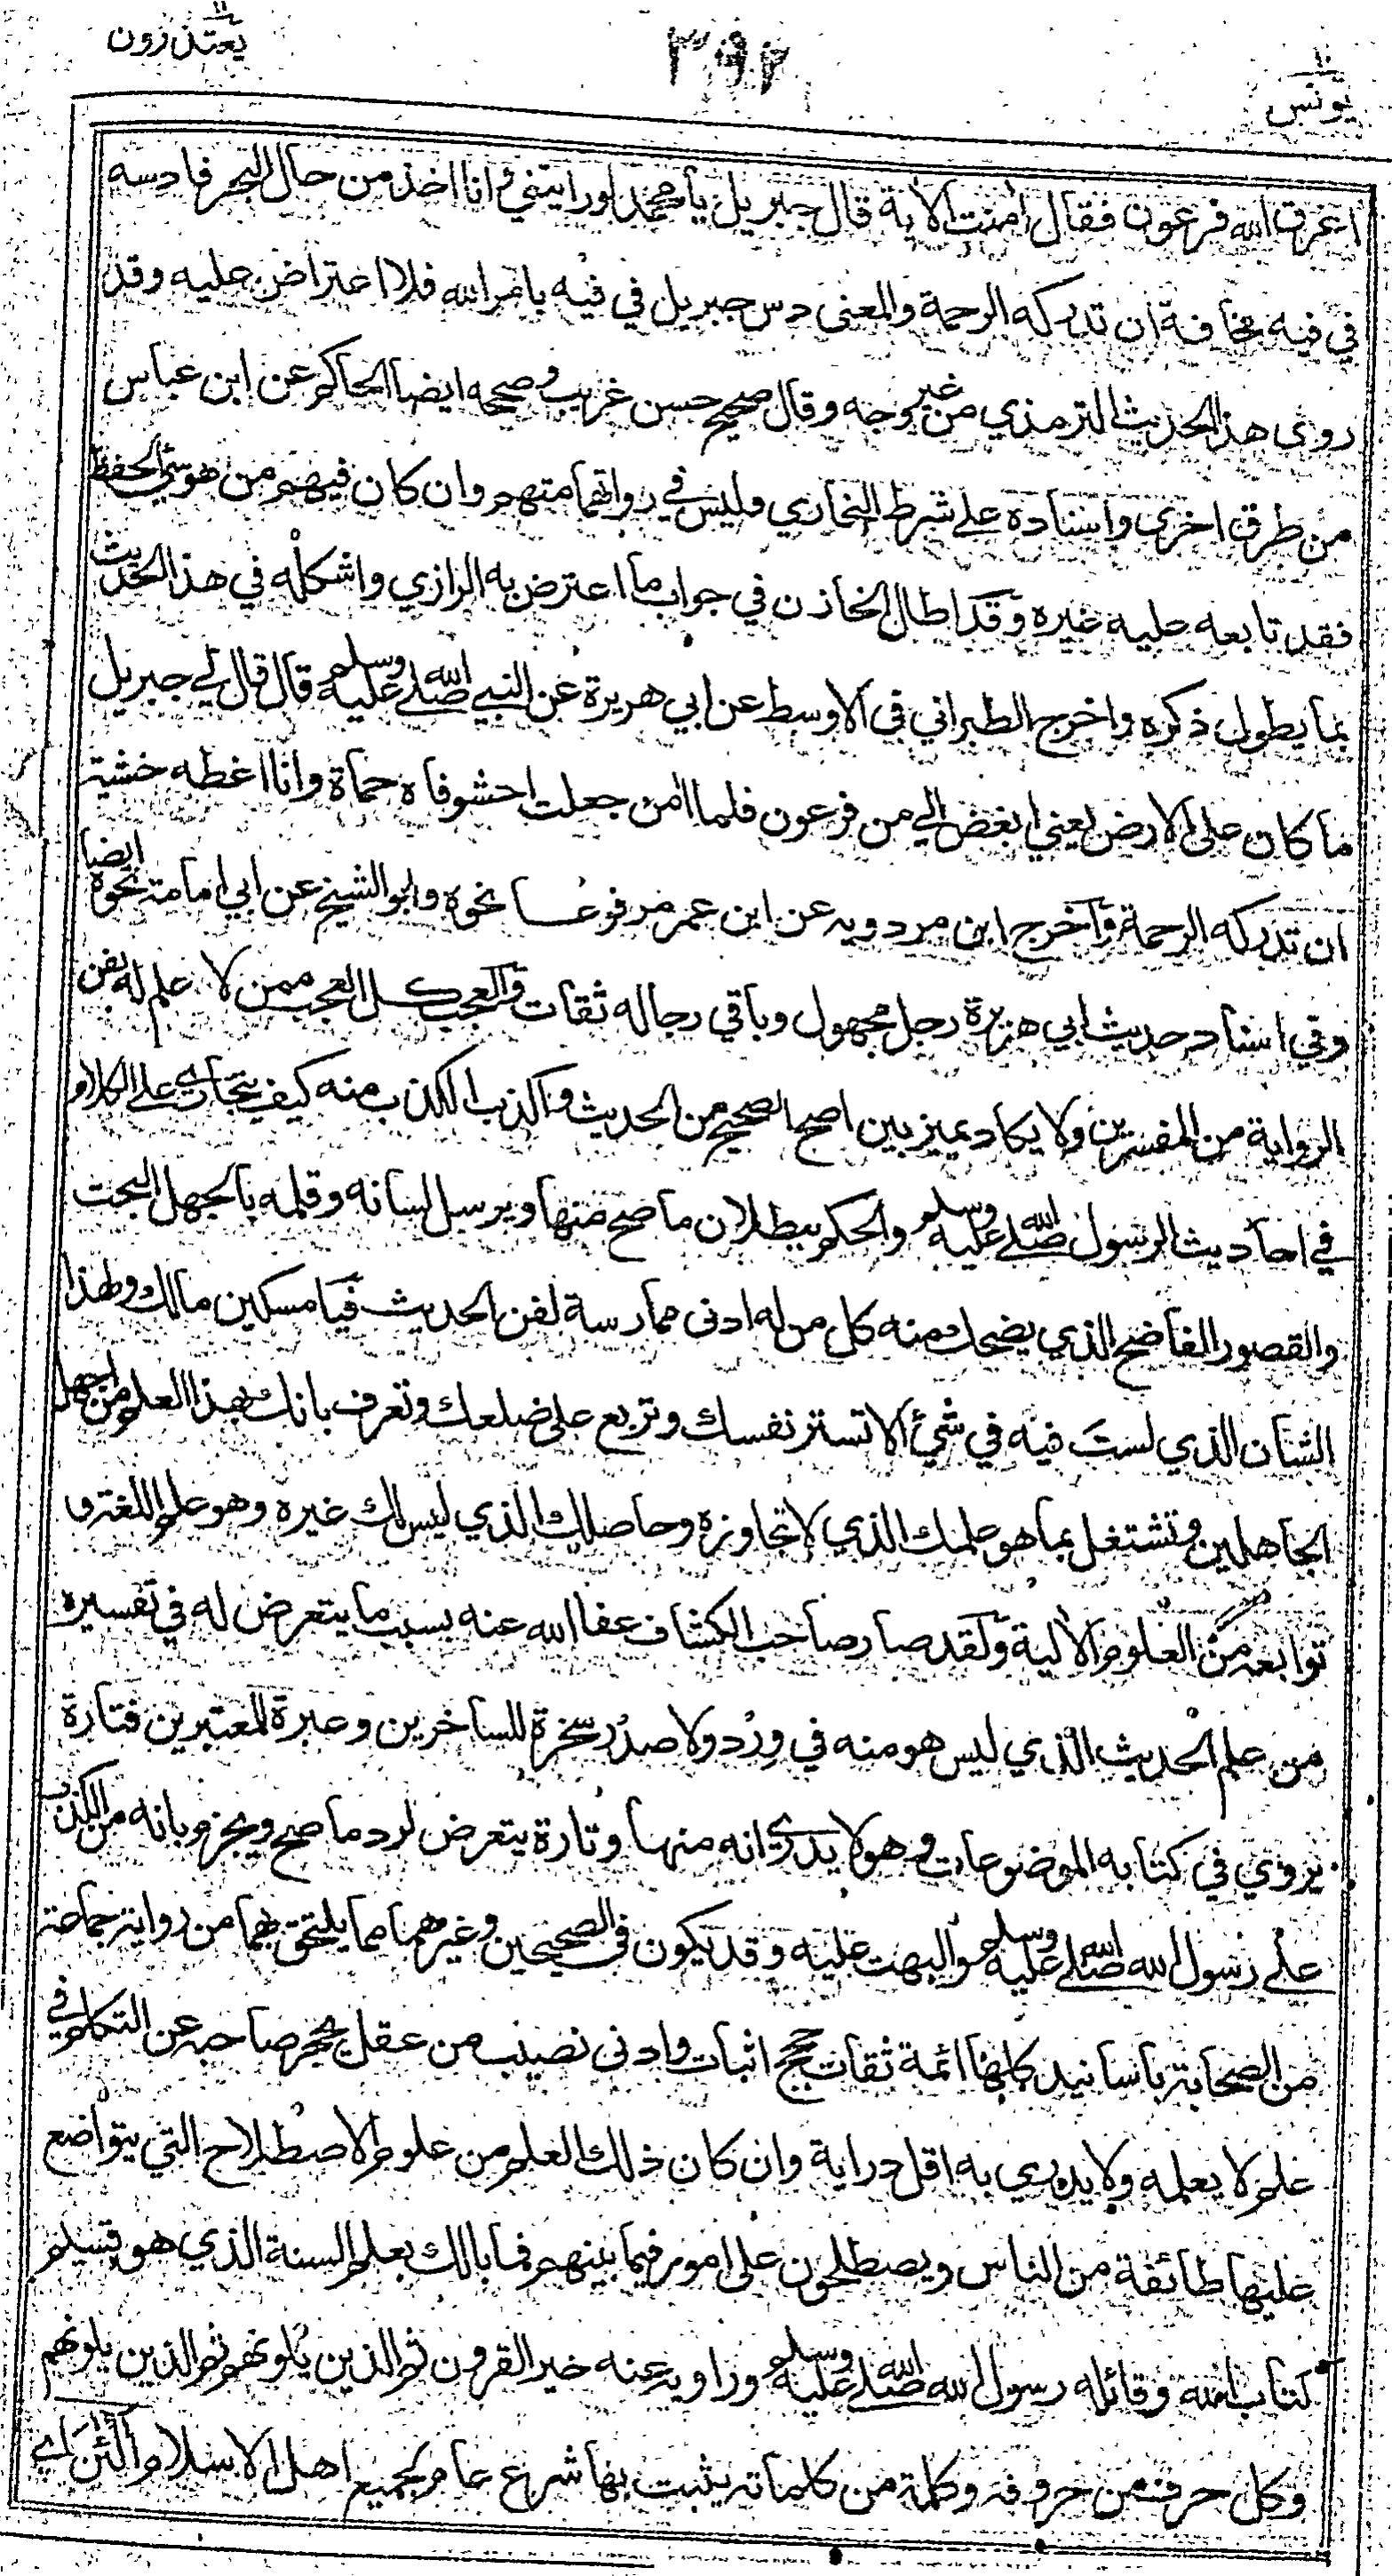 يونس ١٠
٣٩٢
يعتذرون ١١
اغرق الله فرعون فقال امنت الاية قال جبريل يا محمد لو رايتني وانا اخذ من حال البحر فادسه
في فيه مخافة ان تدركه الرحمة والمعنى دس جبريل في فيه بامر الله فلا اعتراض عليه وقد
روى هذا الحديث الترمذي من غير وجه وقال صحيح حسن غريب وصححه ايضا الحاكم عن ابن عباس
من طرق اخرى واسناده على شرط البخاري وليس في رواتهما متهم وان كان فيهم من هو سيئ الحفظ
فقد تابعه عليه غيره وقد اطال الخازن في جواب ما اعترض به الرازي واشكله في هذا الحديث
بما يطول ذكره واخرج الطبراني في الاوسط عن ابي هريرة عن النبي صلى الله عليه وسلم قال قال لي جبريل
ما كان على الارض يعني ابغض الي من فرعون فلما امن جعلت احشو فاه حماة وانا اغطه خشية
ان تدركه الرحمة واخرج ابن مردويه عن ابن عمر مرفوعا نحوه وابو الشيخ عن ابي امامة نحوه ايضا
وفي اسناد حديث ابي هريرة رجل مجهول وباقي رجاله ثقات والعجب كل العجب ممن لا علم له بفن
الرواية من المفسرين ولا يكاد يميز بين اصح الصحيح من الحديث واكذب الكذب منه كيف يتجارى على الكلام
في احاديث الرسول صلى الله عليه وسلم والحكم ببطلان ما صح منها ويرسل لسانه وقلمه بالجهل البحت
والقصور الفاضح الذي يضحك منه كل من له ادنى ممارسة لفن الحديث فيا مسكين مالك ولهذا
الشان الذي لست فيه في شيئ الا تستر نفسك وتربع على ضلعك وتعرف بانك بهذا العلم من اجهل
الجاهلين وتشتغل بما هو علمك الذي لا تجاوزه وحاصلك الذي ليس لك غيره وهو علم اللغة و
توابعه من العلوم الالية ولقد صار صاحب الكشاف عفا الله عنه بسبب ما يتعرض له في تفسيره
من علم الحديث الذي ليس هو منه في وِرْد ولا صدر سخرة للساخرين وعبرة للمعتبرين فتارة
يروي في كتابه الموضوعات وهو لا يدري انه منها وتارة يتعرض لرد ما صح ويجزم بانه من الكذب
على رسول الله صلى الله عليه وسلم والبهت عليه وقد يكون في الصحيحين وغيرهما مما يلتحق بهما من رواية جماعة
من الصحابة باسانيد كلها ائمة ثقات حجج اثبات وادنى نصيب من عقل يحجر صاحبه عن التكلم في
علم لا يعلمه ولا يدري به اقل دراية وان كان ذلك العلم من علوم الاصطلاح التي يتواضع
عليها طائفة من الناس ويصطلحون على امور فيما بينهم فما بالك بعلم السنة الذي هو قسيم
كتاب الله وقائله رسول الله صلى الله عليه وسلم وراويه عنه خير القرون ثم الذين يلونهم ثم الذين يلونهم
وكل حرف من حروفه وكلمة من كلماته يثبت بها شرع عام لجميع اهل الاسلام آلئن اي